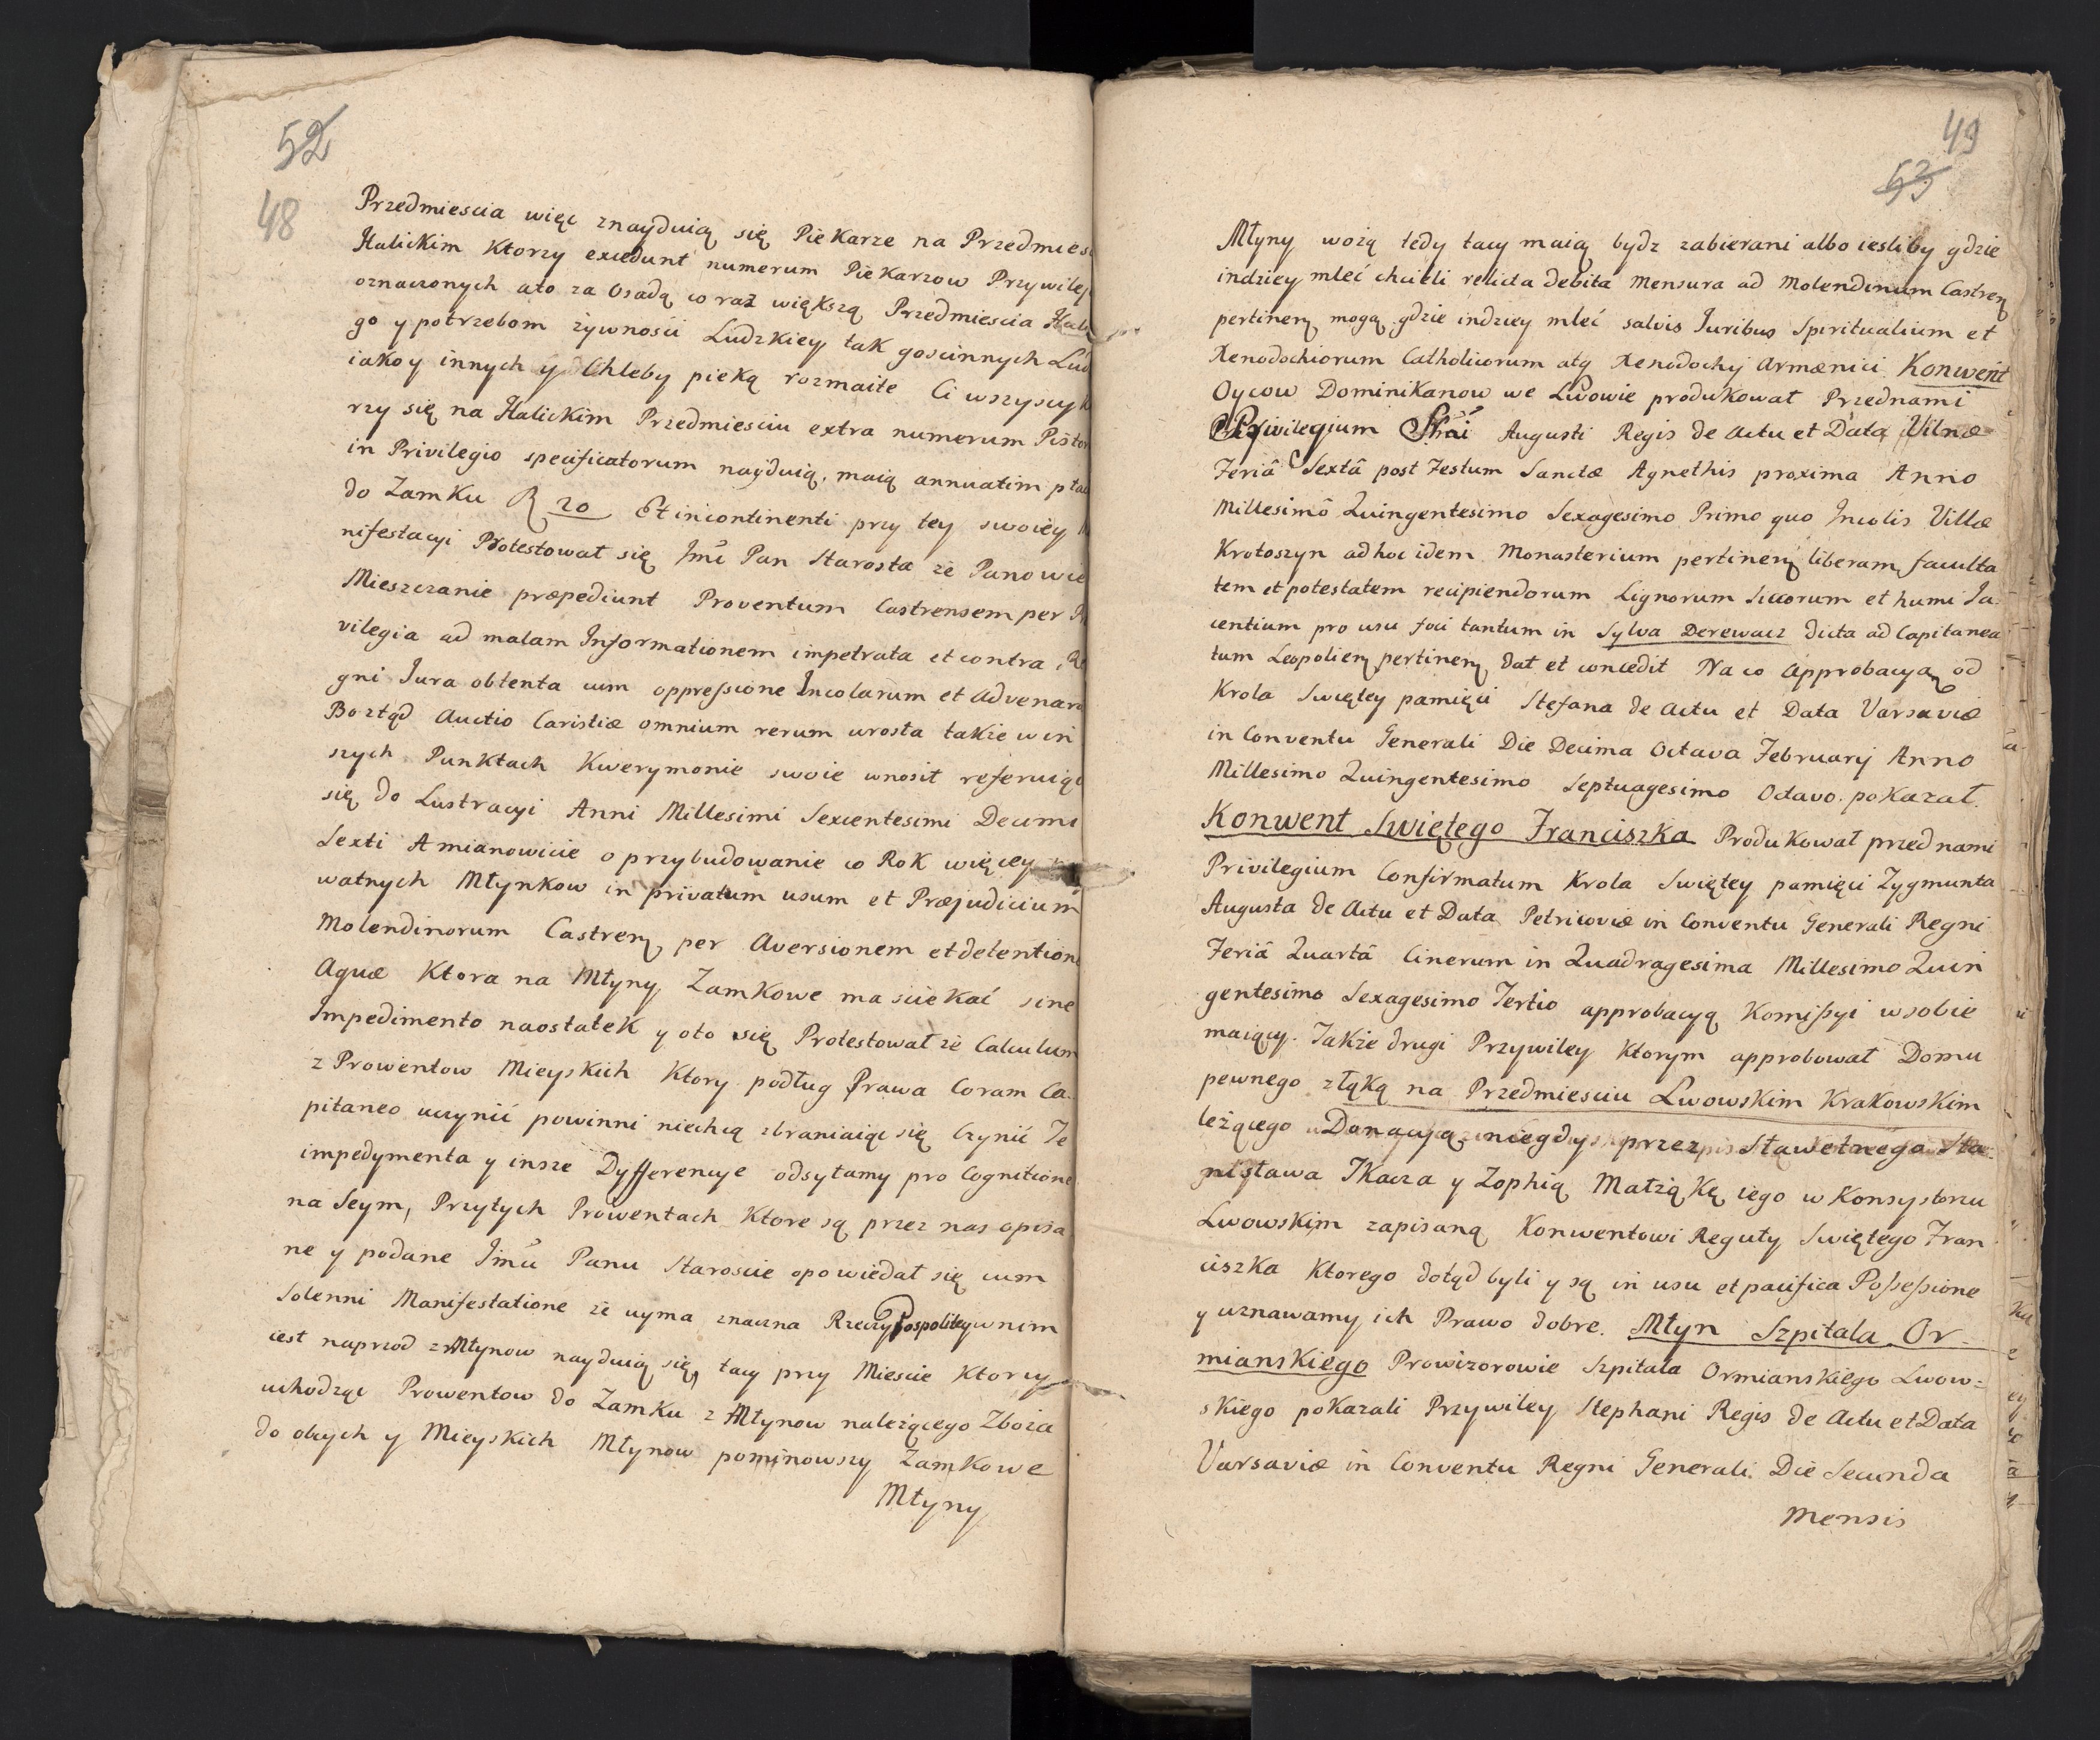 52
48
Przedmiescia więc znayduią się Piekarze na Przedmies
Halickim Ktorzy excedunt numerum Piekarzow Przywilej
oznaczonych ato za Osadą co raz większą Przedmiescia Hali
go y potrzebom żywnosci Ludzkiey tak goscinnych Lud
iako y innych y Chleby pieką rozmaite Ci wszyscy k
rzy się na Halickim Przedmiesciu extra numerum Pistor
in Privilegio specificatorum nayduią, maią annuatim płac
do Zamku 20 Et incontinenti przy tey swoiey
nifestacyi Protestował się Jmć Pan Starosta że Panowie
Mieszczanie præpediunt Proventum Castrensem per P
vilegia ad malam Informationem impetrata et contra Re
gni Iura obtenta cum oppressione Incolarum et Advenar
Boztąd Auctio Caristiæ omnium rerum urosta także w in
szych Punktach Kwerymonie swoie wnosił referuiąc
się do Lustracyi Anni Millesimi Sexcentesimi Decimi
Sexti A mianowicie o przybudowanie co Rok więcey
watnych Młynkow in privatum usum et Præjudicium
Molendinorum Castren per Aversionem et detentione
Aquæ Ktora na Młyny Zamkowe ma sciekać sine
Impedimento naostatek y oto się Protestował że Calculum
z Prowentow Mieyskich Ktory podług Prawa Coram Ca-
pitaneo uczynić powinni niechcą zbraniaiąc się Czynić Te
impedymenta y insze Dyfferencye odsyłamy pro Cognitione
na Seym, Przytych Prowentach Ktore są przez nas opisa
ne y podane Jmći Panu Staroscie opowiedał się cum
Solenni Manifestatione że uyma znaczna Rzeczypospolitey wnim
iest naprzod z Młynow nayduią się tacy przy Miescie Ktorzy
uchodząc Prowentow do Zamku z Młynow należącego Zboża
do obcych y Mieyskich Młynow pominowszy Zamkowe
Młyny
49
53
Młyny wożą tedy tacy maią bydz zabierani albo iesliby gdzie
indziey mleć chcieli relicta debita Mensura ad Molendinum Castren
pertinen mogą gdzie indziey mleć salvis Iuribus Spiritualium et
Xenodochiorum Catholicorum atq Xenodochij Armænici Konwent
Oycow Dominikanow we Lwowie produkował Przednami
Privilegium Augusti Regis de Actu et Data Vilnæ
Feriâ Sextâ post Festum Sanctæ Agnethis proxima Anno
Millesimô Quingentesimo Sexagesimo Primo quo Incolis Villæ
Krotoszyn ad hoc idem Monasterium pertinen liberam faculta
tem et potestatem recipiendorum Lignorum Siccorum et humi Ja-
centium pro usu foci tantum in Sylva Derewacz dicta ad Capitanea
tum Leopolien pertinen dat et concedit Na co Approbacyą od
Krola Swiętey pamięci Stefana de Actu et Data Varsaviæ
in Conventu Generali Die Decima Octava Februarij Anno
Millesimo Quingentesimo Septuagesimo Octavo pokazał.
Konwent Swiętego Franciszka Produkował przed nami
Privilegium Confirmatum Krola Swiętey pamięci Zygmunta
Augusta de Actu et Data Petricoviæ in Conventu Generali Regni
Feriâ Quartâ Cinerum in Quadragesima Millesimo Quin
gentesimo Sexagesimo Tertio approbacyą Komissyi wsobie
maiący. Także drugi Przywiley Ktorym approbował Domu
pewnego złąką na Przedmiesciu Lwowskim Krakowskim
leżącego Donacyą niegdy przez Sławetnego Sta-
nisława Tkacza y Zophią Małżąkę iego w Konsystorzu
Lwowskim zapisaną Konwentowi Reguły Swiętego Fran
ciszka Ktorego dotąd byli y są in usu et pacifica Possessione
y uznawamy ich Prawo dobre. Młyn Szpitala Or-
mianskiego Prowizorowie Szpitala Ormianskiego Lwow-
skiego pokazali Przywiley Stephani Regis de Actu et Data
Varsaviæ in Conventu Regni Generali Die Secunda
Mensis